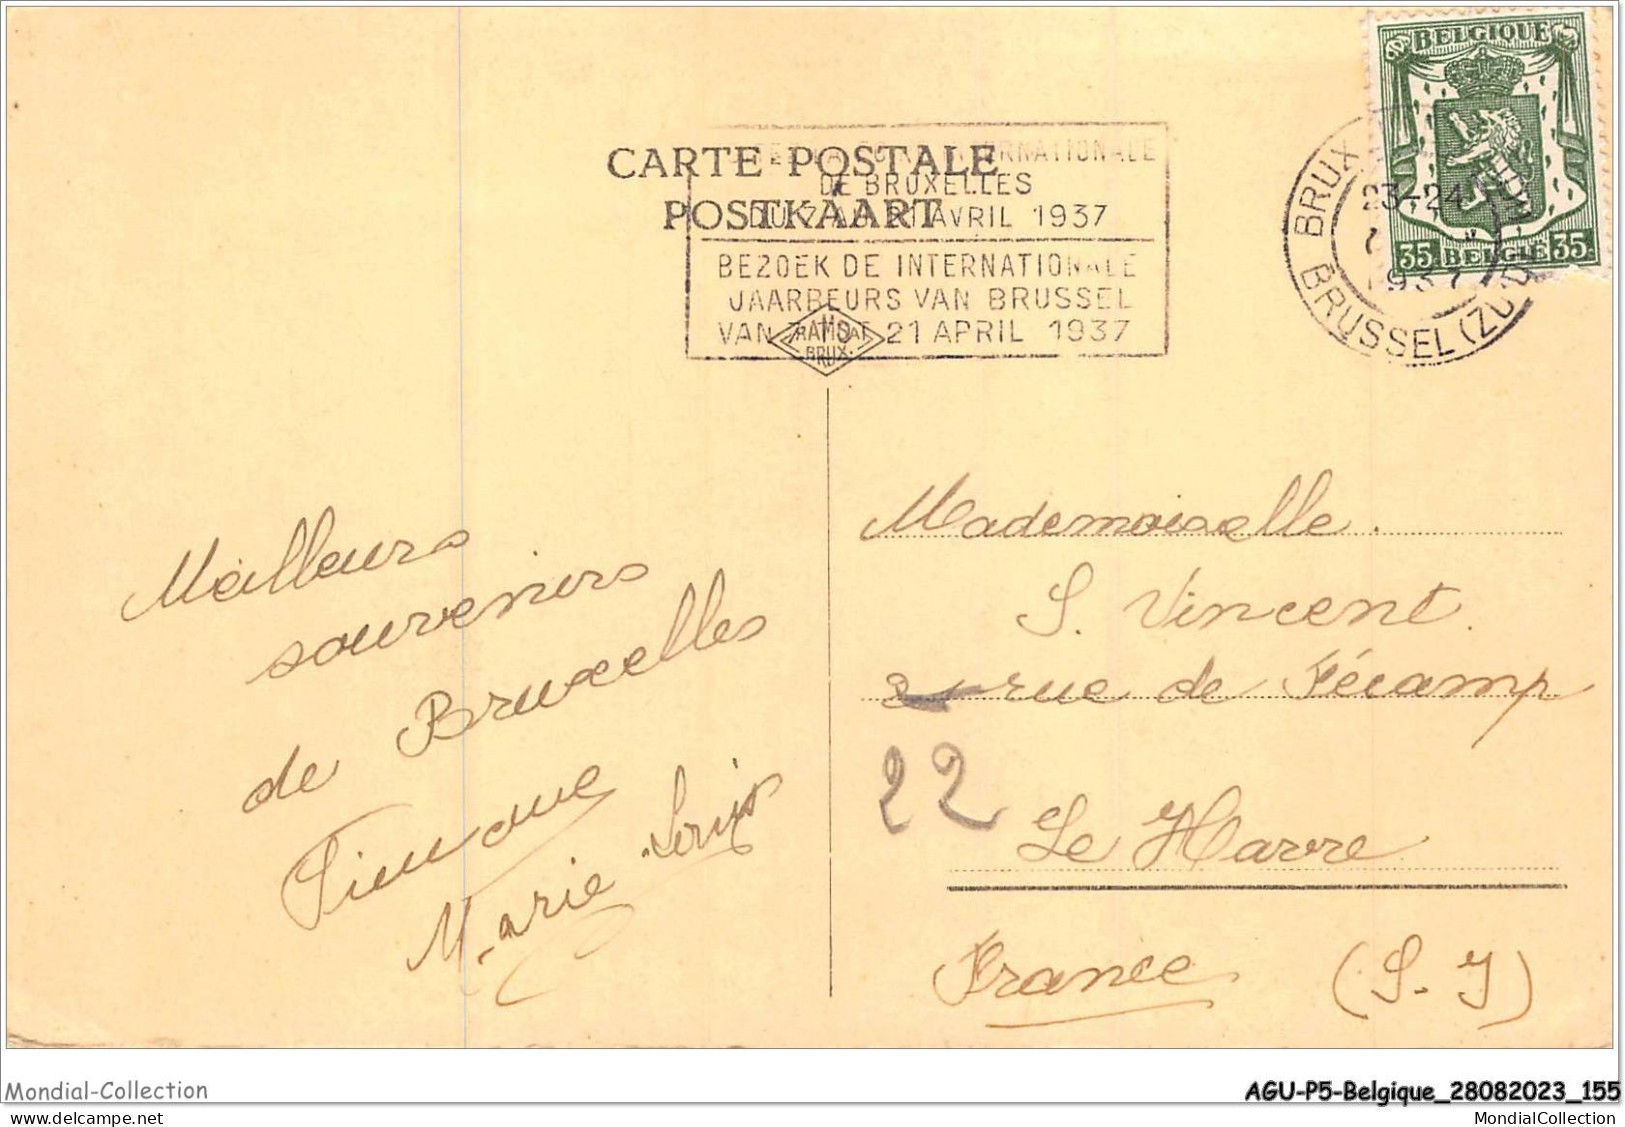 BELGIQUE
35 BELGIË 35
CARTE POSTALE
POSTKAART
INTERNATIONALE
DE BRUXELLES
DU 7 AU 21 AVRIL 1937
BEZOEK DE INTERNATIONALE
JAARBEURS VAN BRUSSEL
VAN 7 TOT 21 APRIL 1937
BRUX
23-24
1937
BRUSSEL (ZUID)
BRUX
Meilleurs
souvenirs
de Bruxelles
Marie-Louise
Mademoiselle.
S. Vincent.
rue de Fécamp
22
Le Havre
France (S. I)
Mondial-Collection
AGU-P5-Belgique_28082023_155
www.delcampe.net
MondialCollection